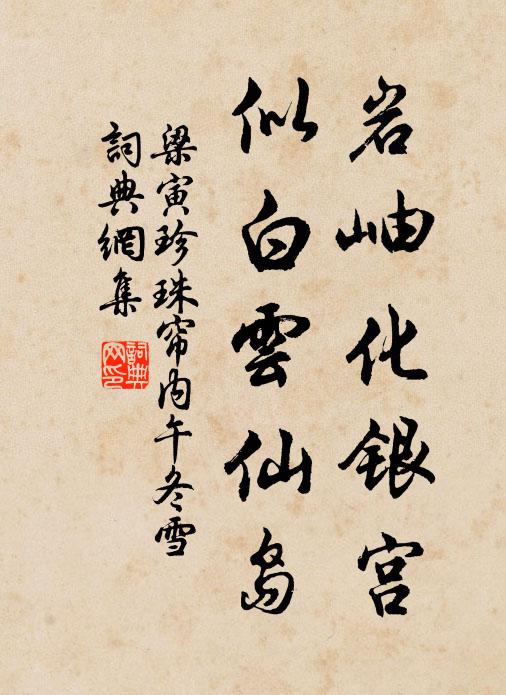 岩岫化银宫
似白雲仙岛
梁寅珍珠帘内午冬雪
詞典網集
詞典网印